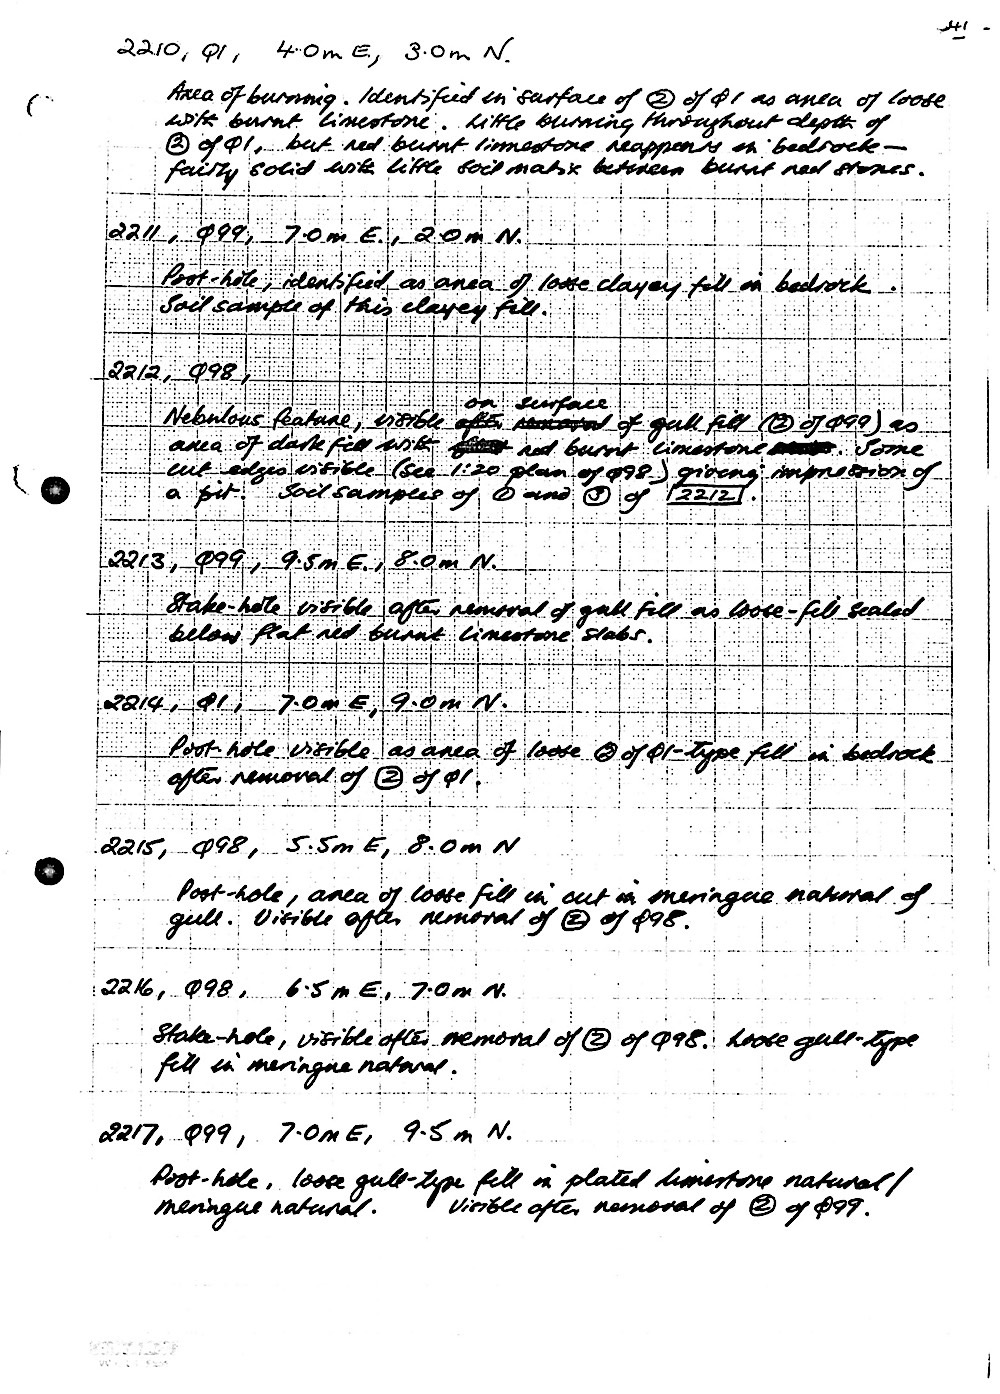 41
2210, Q1, 4.0m E, 3.0m N.
Area of burning. Identified in surface of ② of Q1 as area of loose
with burnt limestone. Little burning throughout depth of
② of Q1, but red burnt limestone reappears in bedrock —
fairly solid with little soil matix between burnt red stones.
2211, Q99, 7.0m E., 2.0m N.
Post-hole, identified as area of loose clayey fill in bedrock.
Soil sample of this clayey fill.
2212, Q98,
on surface
Nebulous feature, visible after removal of gull fill (② of Q99) as
area of dark fill with red burnt limestone. Some
cut edges visible (see 1:20 plan of Q98) giving impression of
a pit. Soil samples of ① and ③ of 2212.
2213, Q99, 9.5m E., 8.0m N.
Stake-hole visible after removal of gull fill as loose-fill sealed
below flat red burnt limestone slabs.
2214, Q1, 7.0m E, 9.0m N.
Post-hole visible as area of loose ② of Q1-type fill in bedrock
after removal of ② of Q1.
2215, Q98, 5.5m E, 8.0m N
Post-hole, area of loose fill in cut in meringue natural of
gull. Visible after removal of ② of Q98.
2216, Q98, 6.5m E, 7.0m N.
Stake-hole, visible after removal of ② of Q98. Loose gull-type
fill in meringue natural.
2217, Q99, 7.0m E, 9.5m N.
Post-hole, loose gull-type fill in plated limestone natural/
meringue natural. Visible after removal of ② of Q99.